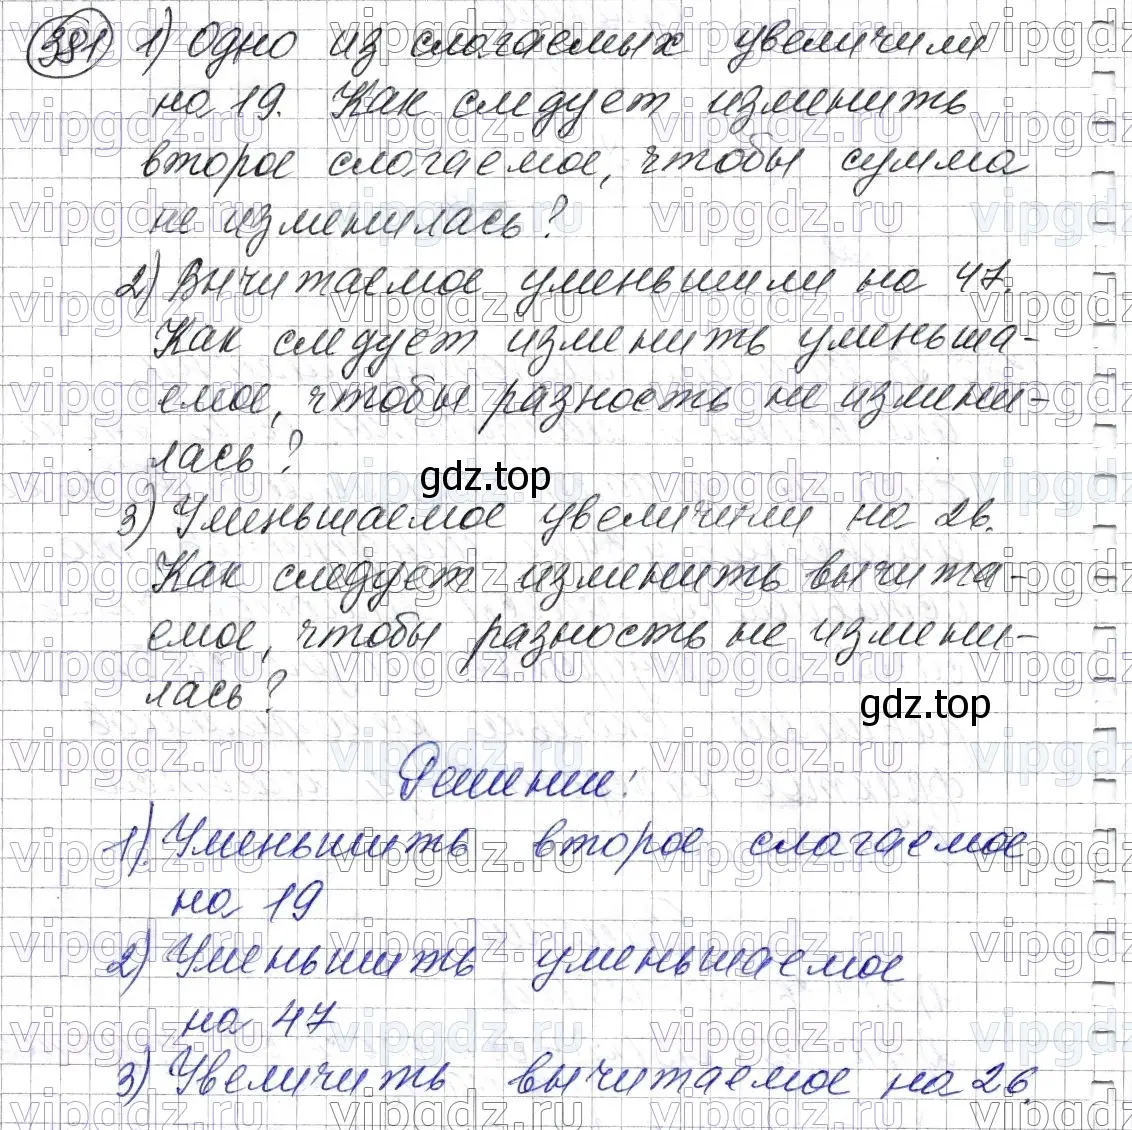 381 1) Одно из слагаемых увеличили
на 19. Как следует изменить
второе слагаемое, чтобы сумма
не изменилась?
2) Вычитаемое уменьшили на 47.
Как следует изменить уменьша-
емое, чтобы разность не измени-
лась?
gdz.top
3) Уменьшаемое увеличили на 26.
Как следует изменить вычита-
емое, чтобы разность не измени-
лась?
gdz.top
Решение:
1) Уменьшить второе слагаемое
на 19
2) Уменьшить уменьшаемое
на 47
3) Увеличить вычитаемое на 26.
vipgdz.ru